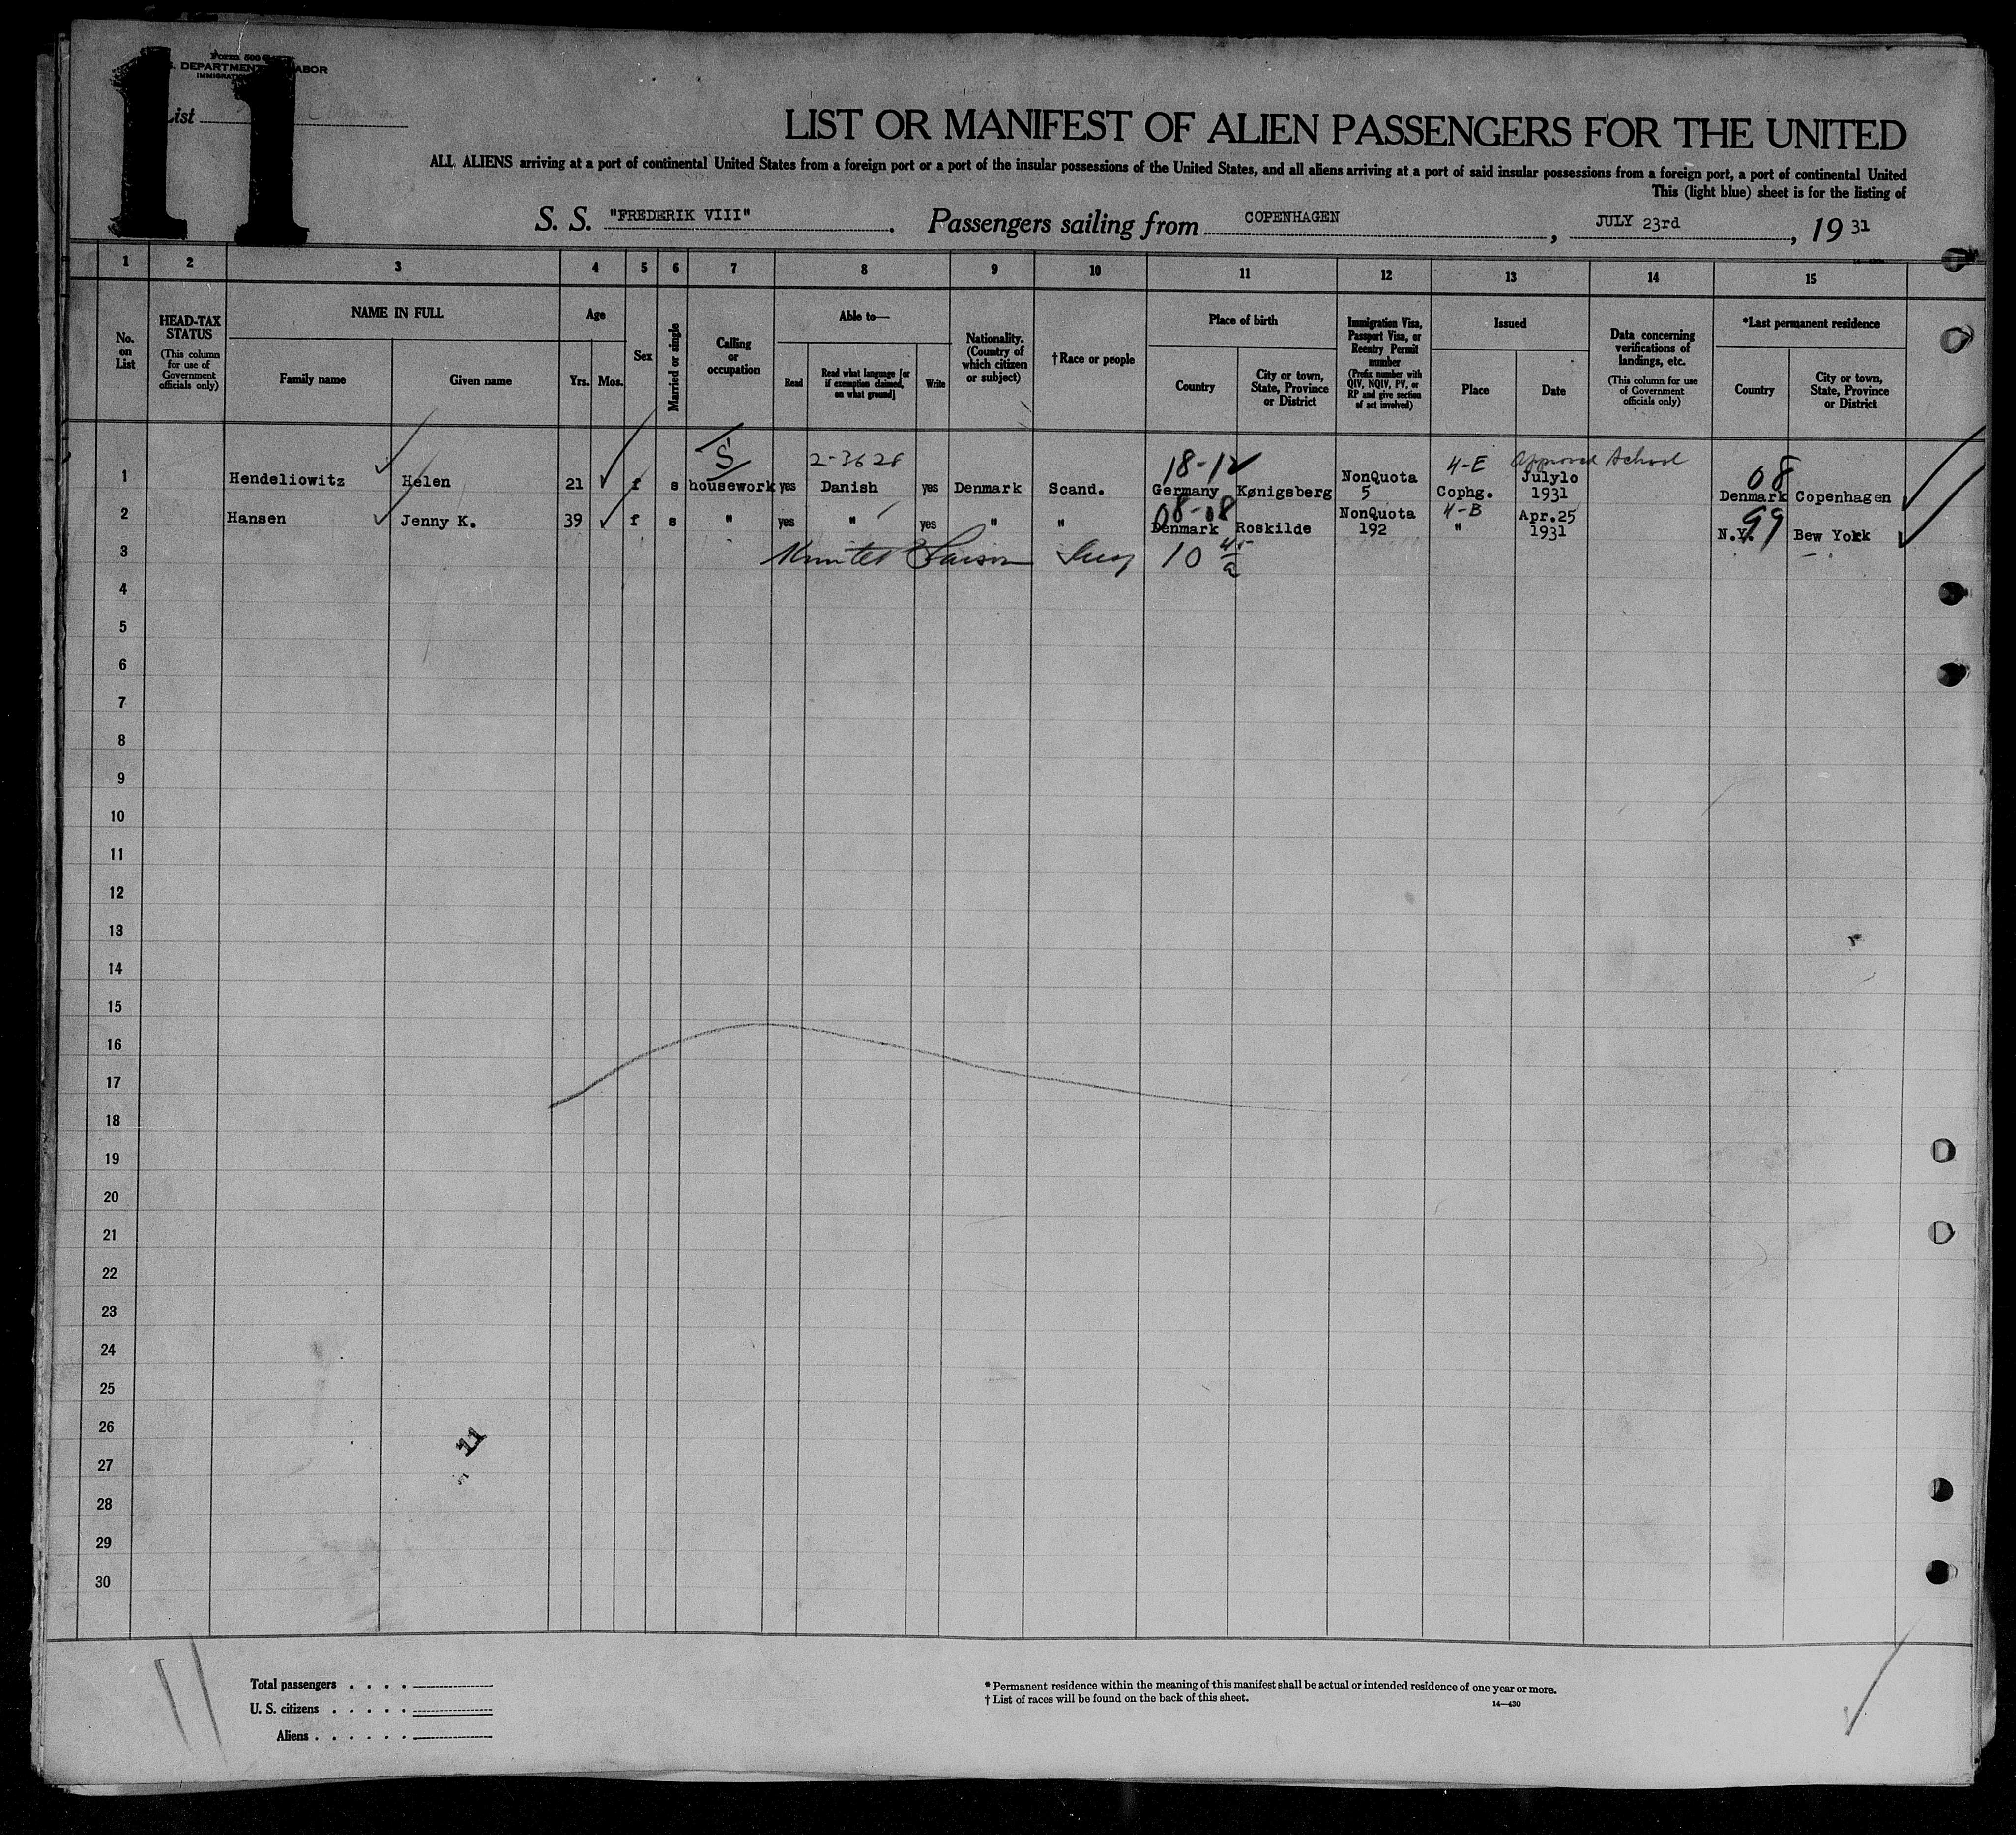 11
Form 500
DEPARTMENT
List
LIST OR MANIFEST OF ALIEN PASSENGERS FOR THE UNITED
ALL ALIENS arriving at a port of continental United States from a foreign port or a port of the insular possessions of the United States, and all aliens arriving at a port of said insular possessions from a foreign port, a port of continental United
This (light blue) sheet is for the listing of
S. S. "FREDERIK VIII". Passengers sailing from COPENHAGEN, JULY 23rd, 1931
1 2 3 4 5 6 7 8 9 10 11 12 13 14 15
No. on List
HEAD-TAX STATUS (This column for use of Government officials only)
NAME IN FULL
Family name Given name
Age
Yrs. Mos.
Sex
Married or single
Calling or occupation
Able to—
Read
Read what language [or if exemption claimed, on what ground]
Write
Nationality. (Country of which citizen or subject)
†Race or people
Place of birth
Country
City or town, State, Province or District
Immigration Visa, Passport Visa, or Reentry Permit number (Prefix number with QIV, NQIV, PV, or RP and give section of act involved)
Issued
Place Date
Data concerning verifications of landings, etc. (This column for use of Government officials only)
*Last permanent residence
Country
City or town, State, Province or District
S 2-3628 18-12 4-E Approved School 08
1 Hendeliowitz Helen 21 f s housework yes Danish yes Denmark Scand. Germany Kønigsberg NonQuota 5 Cophg. July10 1931 Denmark Copenhagen
08-08 4-B 99
2 Hansen Jenny K. 39 f s " yes " yes " " Denmark Roskilde NonQuota 192 " Apr.25 1931 N.Y. Bew York
3 10 45 a
4
5
6
7
8
9
10
11
12
13
14
15
16
17
18
19
20
21
22
23
24
25
26
11
27
28
29
30
11
Total passengers . . . .
U. S. citizens . . . . .
Aliens . . . . . .
* Permanent residence within the meaning of this manifest shall be actual or intended residence of one year or more.
† List of races will be found on the back of this sheet.
14—430